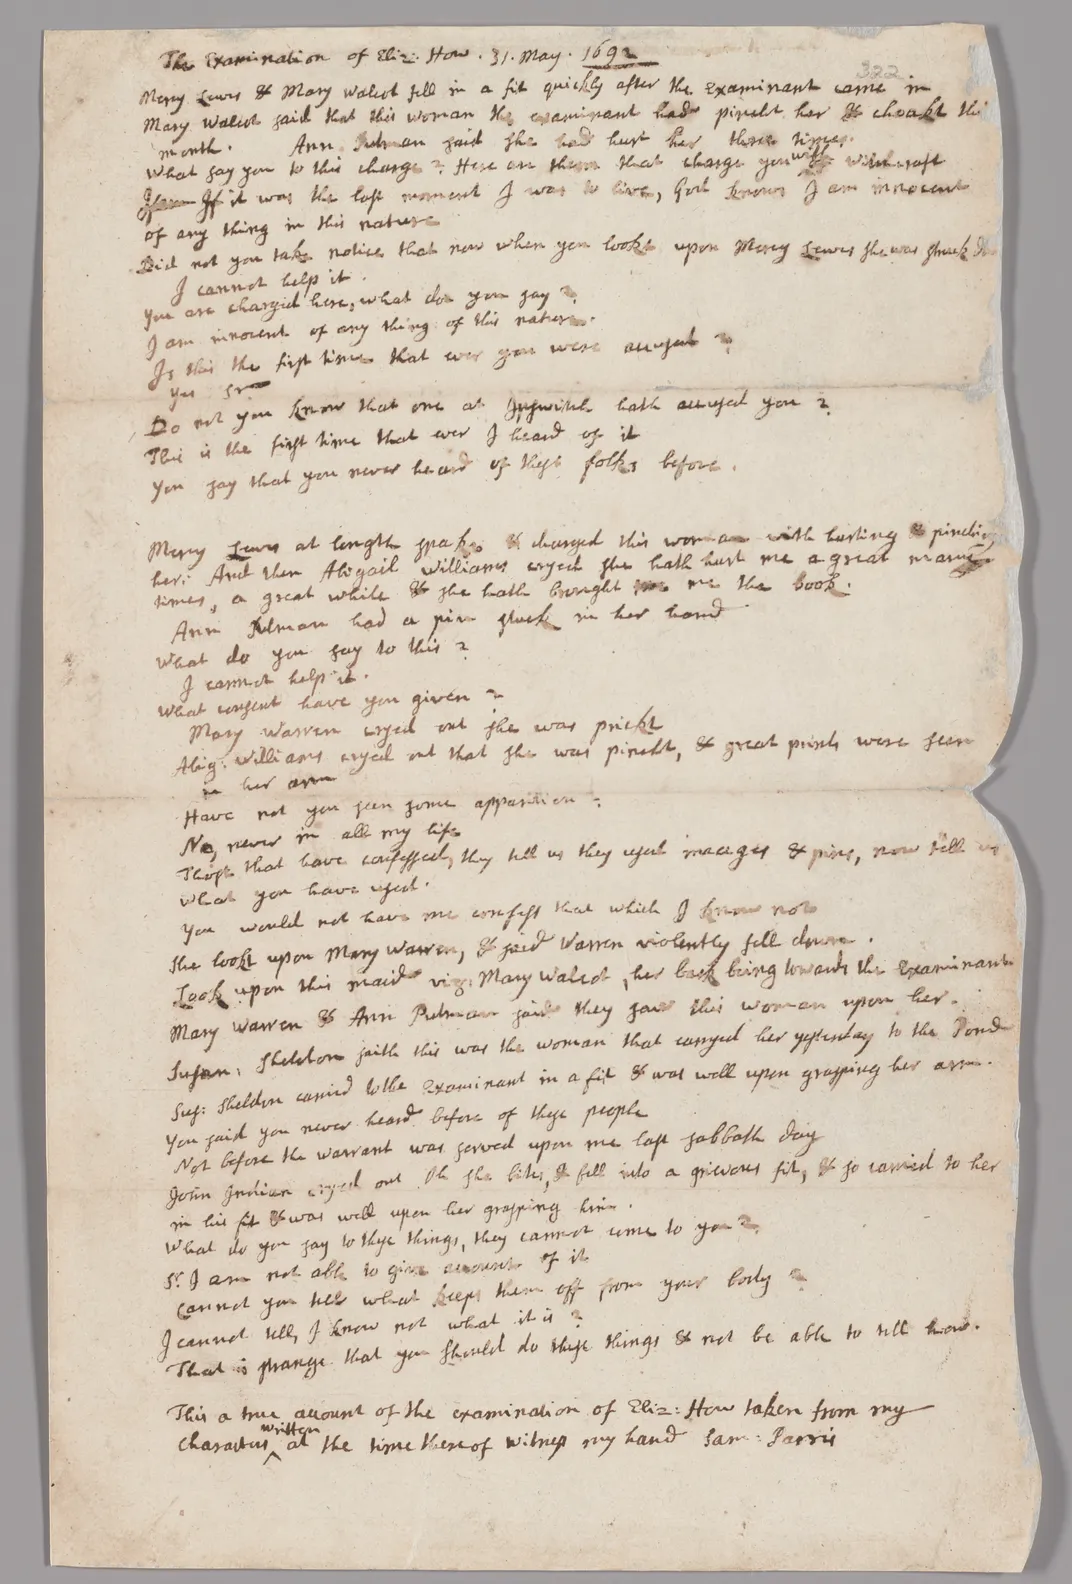 The Examination of Eliz: How. 31. May. 1692
322
Mercy Lewis & Mary Walcot fell in a fit quickly after the examinant came in
Mary Walcot said that this woman the examinant had pincht her & choakt this
month. Ann Putman said she had hurt her three times.
What say you to this charge? Here are them that charge you with witchcraft
If it was the last moment I was to live, God knows I am innocent
of any thing in this nature
Did not you take notice that now when you lookt upon Mercy Lewis she was struck
I cannot help it.
You are charged here, what doe you say?
I am innocent of any thing of this nature.
Is this the first time that ever you were accused?
Yes Sr
Do not you know that one at Ipswitch hath accused you?
This is the first time that ever I heard of it
You say that you never heard of these folks before.
Mercy Lewis at length spake, & charged this woman with hurting & pinching
her: And then Abigail Williams cryed she hath hurt me a great many
times, a great while & she hath brought me the book.
Ann Putman had a pin stuck in her hand
What do you say to this?
I cannot help it.
What consent have you given?
Mary Warren cryed out she was prickt
Abig: Williams cryed out that she was pincht, & great prints were seen
in her arm
Have not you seen some apparition?
No, never in all my life
Those that have confessed, they tell us they used images & pins, now tell us
What you have used.
You would not have me confess that which I know not
She lookt upon Mary Warren, & said Warren violently fell down.
Look upon this maid viz: Mary Walcot, her back being towards the Examinant
Mary Warren & Ann Putman said they saw this woman upon her.
Susan: Sheldon saith this was the woman that carryed her yesterday to the Pond
Sus: Sheldon carried to the Examinant in a fit & was well upon grasping her arm.
You said you never heard before of these people
Not before the warrant was served upon me last sabbath day
John Indian cryed out Oh she bites, & fell into a grievous fit, & so carried to her
in his fit & was well upon her grasping him.
What do you say to these things, they cannot come to you?
Sr. I am not able to give account of it
Cannot you tell what keeps them off from your body?
I cannot tell, I know not what it is?
That is strange that you should do these things & not be able to tell how.
This a true account of the examination of Eliz: How taken from my
characters written at the time thereof Witness my hand Sam: Parris